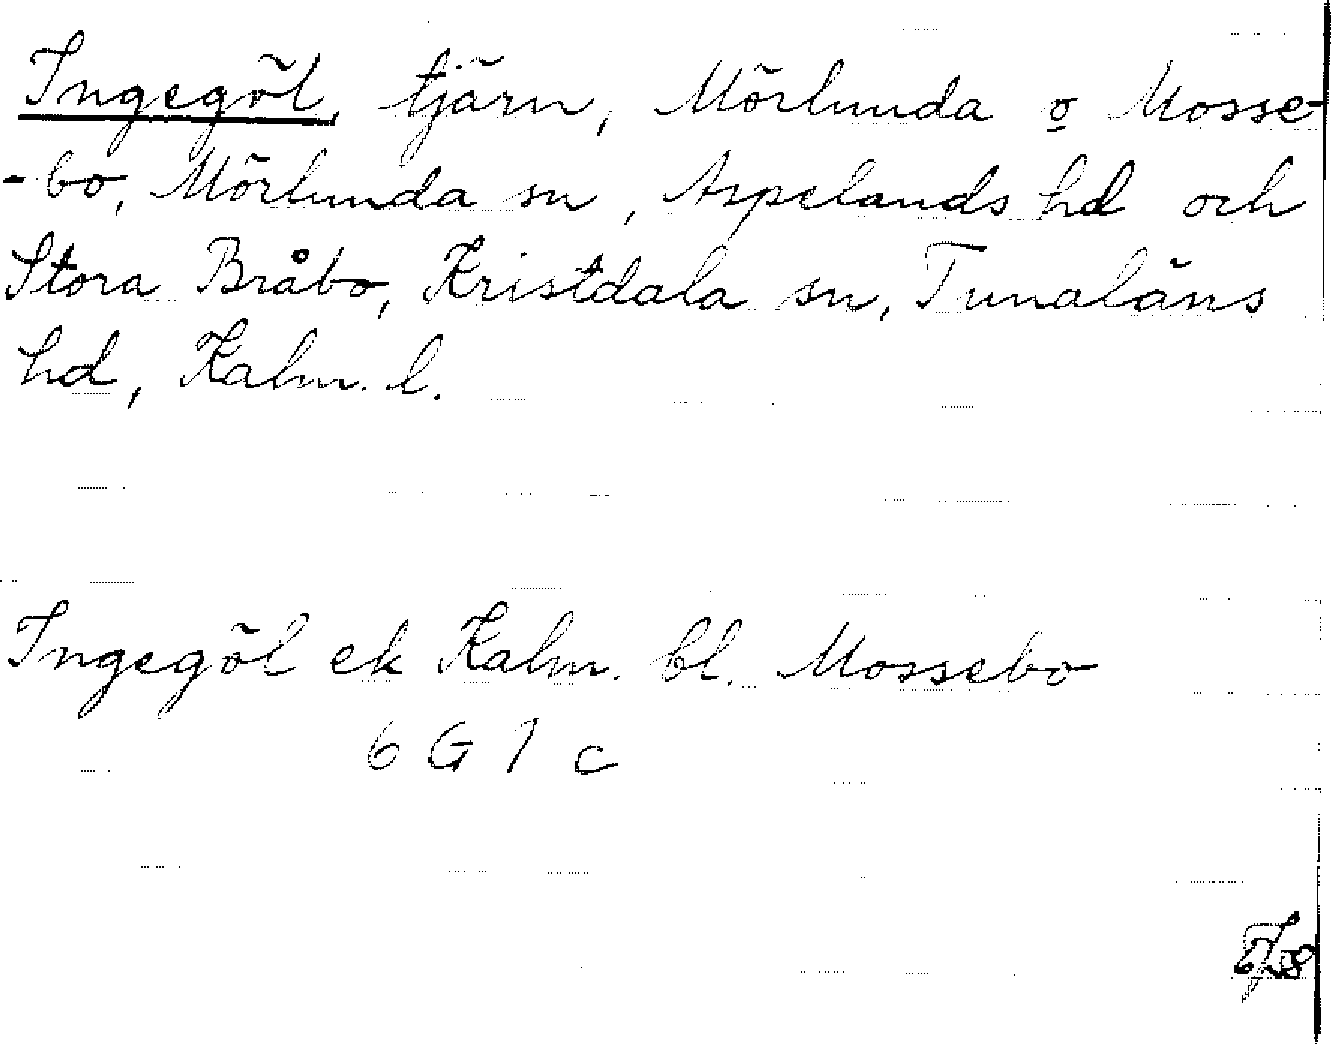 Ingegöl, tjärn, Mörlunda o Mosse-
-bo, Mörlunda sn, Aspelands hd och
Stora Bråbo, Kristdala sn, Tunaläns
hd, Kalm. l.
Ingegöl ek Kalm. bl. Mossebo
6 G 1 c